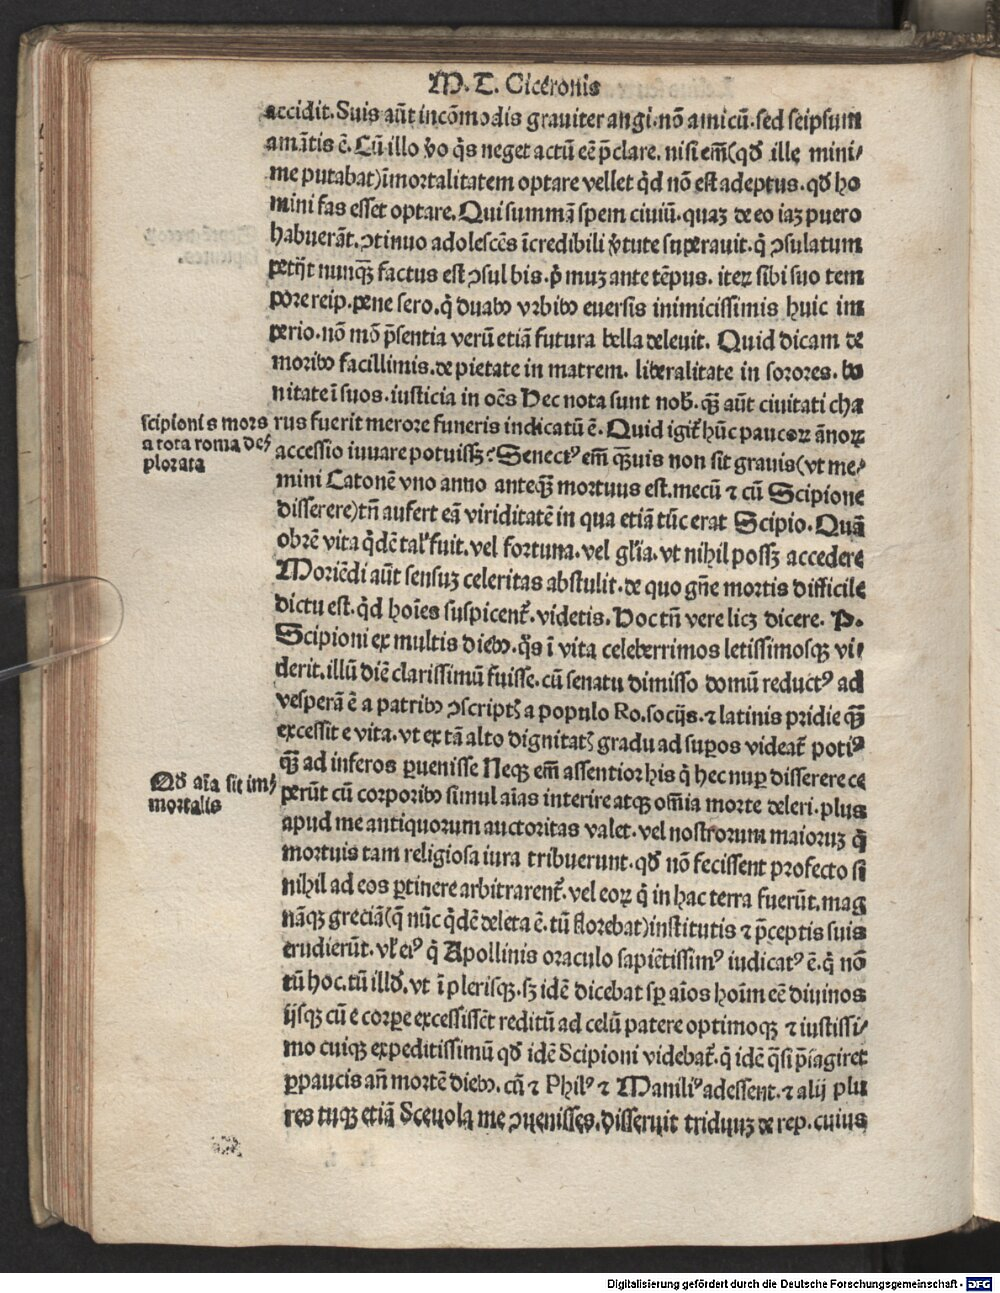 M. T. Ciceronis
accidit. Suis aūt incōmodis grauiter angi. nō amicū. sed seipsum
amātis ē. Cū illo ꝟo q̄s neget actū eē p̄clare. nisi em̄(qđ ille mini⸗
me putabat)īmortalitatem optare vellet qd̄ nō est adeptus. qđ ho
mini fas esset optare. Qui summā spem ciuiū. quaꝫ de eo iaꝫ puero
habuerāt. ꝯtinuo adolescēs īcredibili ꝟtute superauit. q̇ ꝯsulatum
petijt nunqꝫ̄ factus est ꝯsul bis. p̄muꝫ ante tēpus. iteꝝ sibi suo tem
pore reip. pene sero. q̇ duabꝰ vrbibꝰ euersis inimicissimis huic im
perio. nō mō p̄sentia verū etiā futura bella deleuit. Quid dicam de
moribꝰ facillimis. de pietate in matrem. liberalitate in sorores. bo
nitate ī suos. iusticia in oēs Hec nota sunt nob̄. qꝫ̄ aūt ciuitati cha
scipionis mors
a tota roma de⸗
plorata
rus fuerit merore funeris indicatū ē. Quid igit᷑ hūc paucoꝝ ānoꝝ
accessio iuuare potuissꝫ? Senectꝰ em̄ quāuis non sit grauis(vt me⸗
mini Catonē vno anno anteqꝫ̄ mortuus est. mecū ⁊ cū Scipione
disserere)tn̄ aufert eā viriditatē in qua etiā tūc erat Scipio. Quā
obrē vita qd̄ē tal' fuit. vel fortuna. vel gl'ia. vt nihil possꝫ accedere
Moriēdi aūt sensuꝫ celeritas abstulit. de quo gn̄e mortis difficile
dictu est. qd̄ hoīes suspicent᷑. videtis. Hoc tn̄ vere licꝫ dicere. P.
Scipioni ex multis diebꝰ. q̄s ī vita celeberrimos letissimosqꝫ vi⸗
derit. illū diē clarissimū fuisse. cū senatu dimisso domū reductꝰ ad
vesperā ē a patribꝰ ꝯscriptꝭ a populo Ro. socijs. ⁊ latinis pridie qꝫ̄
excessit e vita. vt ex tā alto dignitatꝭ gradu ad suꝑos videat᷑ potiꝰ
qꝫ̄ ad inferos ꝑuenisse Neqꝫ em̄ assentior his q̇ hec nuꝑ disserere ce
Qđ aīa sit im⸗
mortalis
perūt cū corporibꝰ simul aīas interire atqꝫ om̄ia morte deleri. plus
apud me antiquorum auctoritas valet. vel nostrorum maioruꝫ q̇
mortuis tam religiosa iura tribuerunt. qđ nō fecissent profecto si
nihil ad eos ꝑtinere arbitrarent᷑. vel eoꝝ q̇ in hac terra fuerūt. mag
nāqꝫ greciā(q̄ nūc qd̄ē deleta ē. tū florebat)institutis ⁊ p̄ceptis suis
erudierūt. vl' eiꝰ q̇ Apollinis oraculo sapiētissimꝰ iudicatꝰ ē. q̇ nō
tū hoc. tū illđ. vt ī plerisqꝫ. sꝫ idē dicebat sꝑ aīos hoīm eē diuinos
ijsqꝫ cū e corꝑe excessissēt reditū ad celū patere optimoqꝫ ⁊ iustissi⸗
mo cuiqꝫ expeditissimū qđ idē Scipioni videbat᷑. q̇ idē q̄si p̄sagiret
ꝑpaucis an̄ mortē diebꝰ. cū ⁊ Philꝰ ⁊ Maniliꝰ adessent. ⁊ alij plu
res tuqꝫ etiā Sceuola me ꝯuenisses. disseruit triduuꝫ de rep. cuius
Digitalisierung gefördert durch die Deutsche Forschungsgemeinschaft - DFG